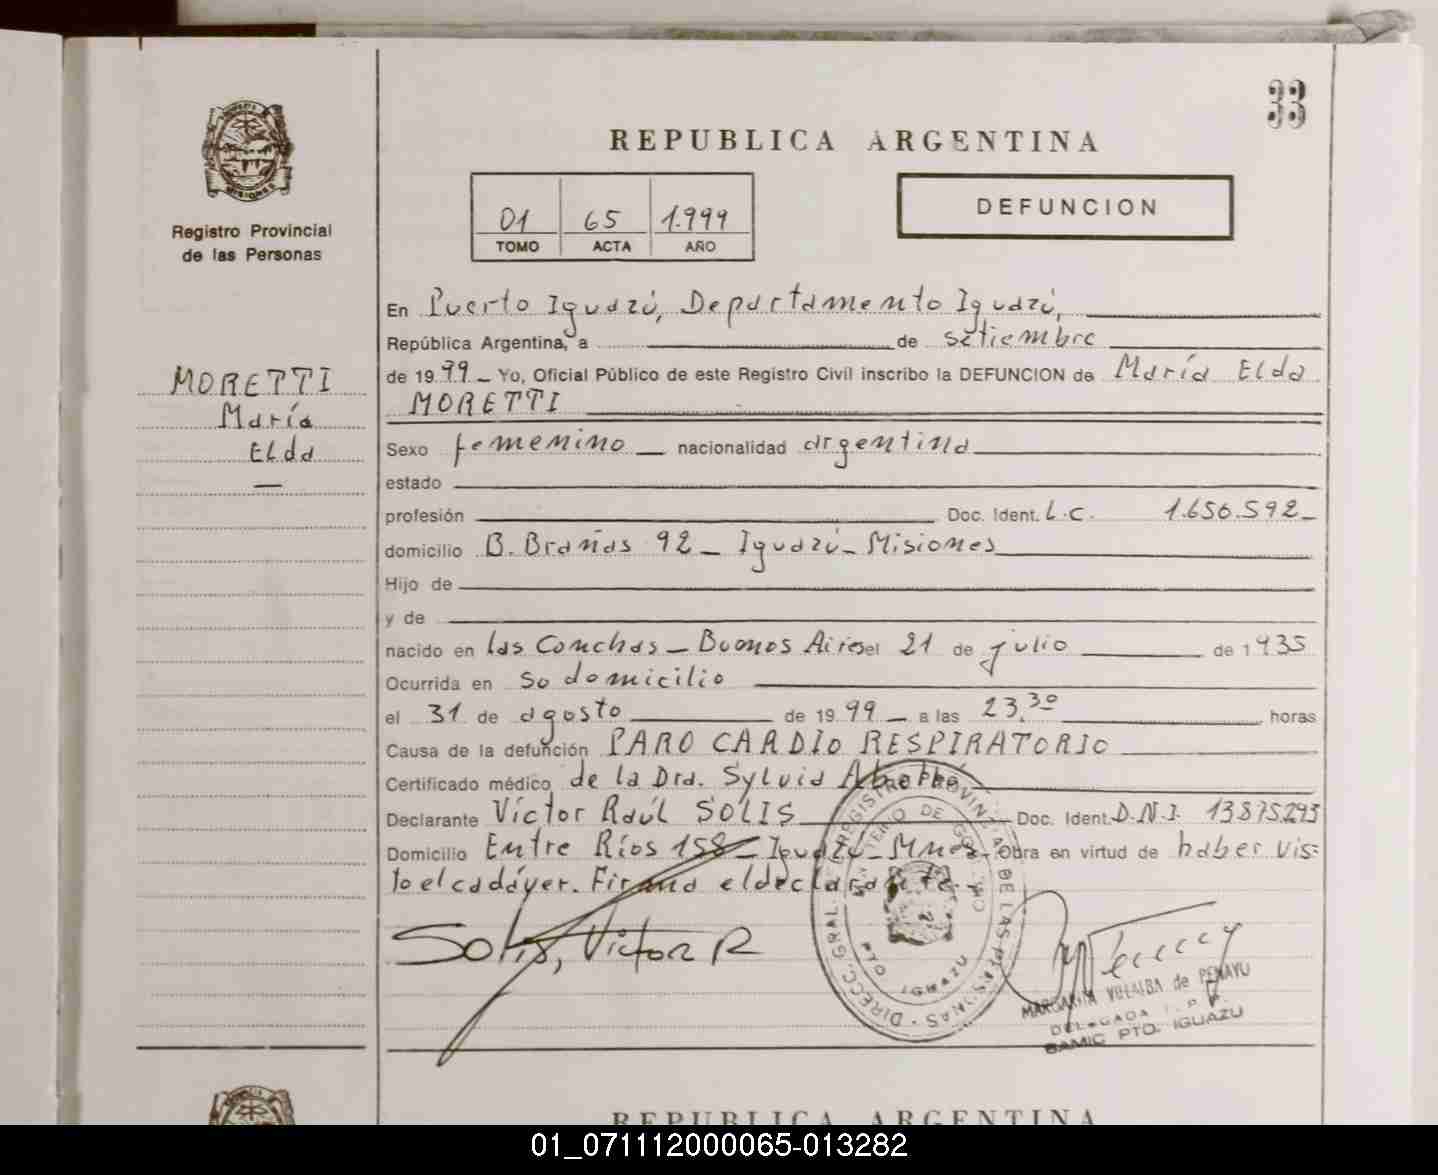 33
REPUBLICA ARGENTINA
MISIONES
Registro Provincial
de las Personas
01 65 1.999
TOMO ACTA AÑO
DEFUNCION
MORETTI
María
Elda
—
En Puerto Iguazú, Departamento Iguazú,
República Argentina, a de setiembre
de 1999 — Yo, Oficial Público de este Registro Civil inscribo la DEFUNCION de María Elda
MORETTI
Sexo femenino — nacionalidad argentina
estado
profesión Doc. Ident. L.C. 1.656.592 —
domicilio B. Brañas 92 — Iguazú — Misiones
Hijo de
y de
nacido en las Conchas — Buenos Aires el 21 de julio de 1935
Ocurrida en so domicilio
el 31 de agosto de 1999 — a las 23,30 horas
Causa de la defunción PARO CARDIO RESPIRATORIO
Certificado médico de la Dra. Sylvia
Declarante Víctor Raúl SOLIS Doc. Ident. D.N.I. 13.875.293
Domicilio Entre Ríos 158 — Iguazú — Mnes. Obra en virtud de haber vis=
to el cadáver. Firma el declarante. —
Solis, Victor R
DIRECC. GRAL. REGISTRO PROVINCIAL DE LAS PERSONAS
MINISTERIO DE GOBIERNO
PTO IGUAZU
MARGARITA VILLALBA de PENAYU
DELEGADA
SAMIC PTO. IGUAZU
REPUBLICA ARGENTINA
01_071112000065-013282